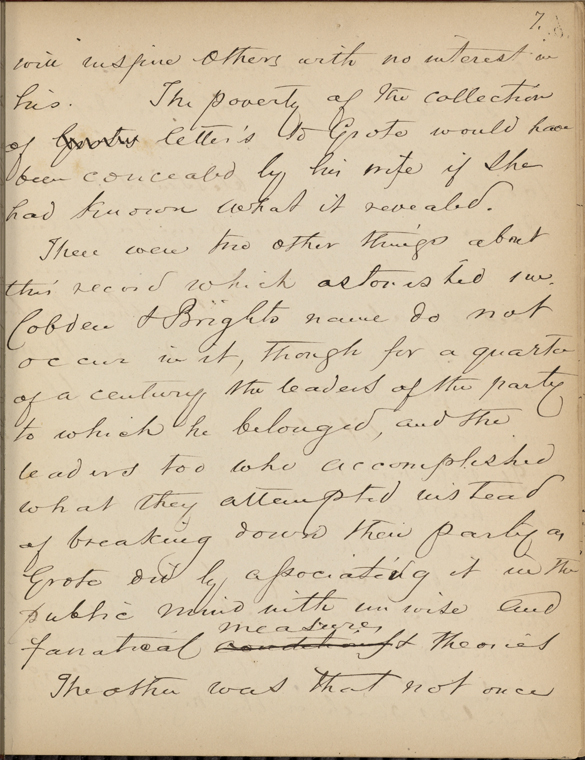 7.
will inspire others with no interest in
his. The poverty of the collection
of Grote's letter's to Grote would have
been concealed by his wife if she
had known what it revealed.
There were two other things about
this record which astonished me.
Cobden & Brights name do not
occur in it, though for a quarter
of a century the leaders of the party
to which he belonged, and the
leaders too who accomplished
what they attempted instead
of breaking down their party as
Grote did by associating it in the
public mind with unwise and
measures
fanatical & theories
The other was that not once